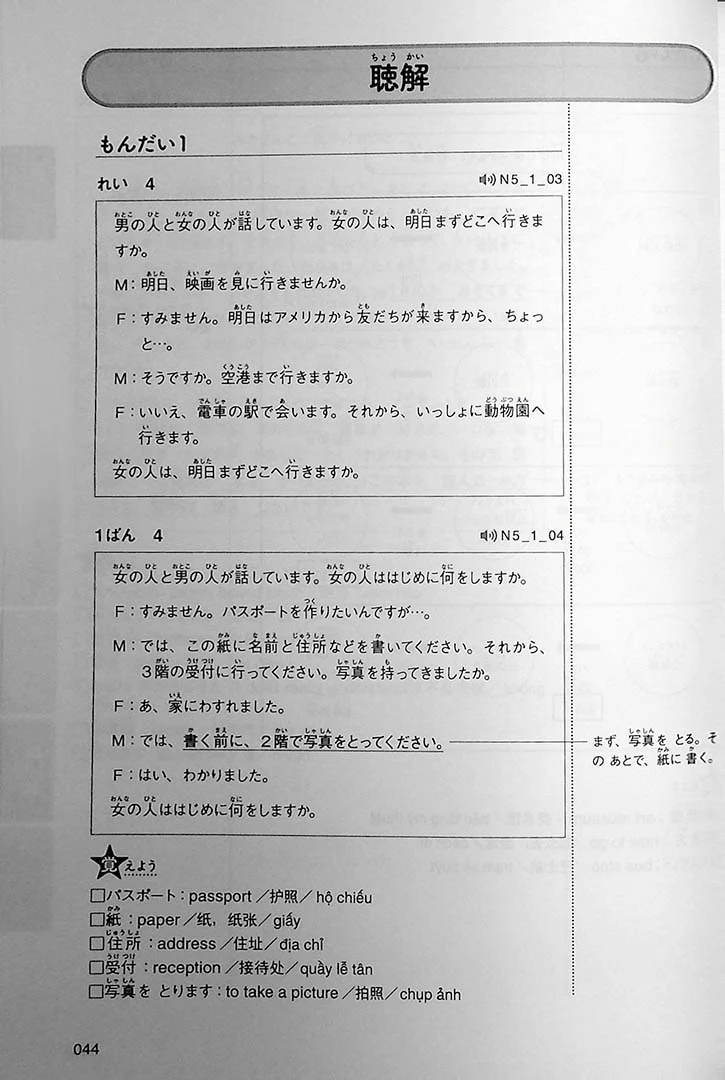 聴解
もんだい1
れい 4 N5_1_03
男の人と女の人が話しています。女の人は、明日まずどこへ行きま
すか。
M：明日、映画を見に行きませんか。
F：すみません。明日はアメリカから友だちが来ますから、ちょっ
と…。
M：そうですか。空港まで行きますか。
F：いいえ、電車の駅で会います。それから、いっしょに動物園へ
行きます。
女の人は、明日まずどこへ行きますか。
1ばん 4 N5_1_04
女の人と男の人が話しています。女の人ははじめに何をしますか。
F：すみません。パスポートを作りたいんですが…。
M：では、この紙に名前と住所などを書いてください。それから、
3階の受付に行ってください。写真を持ってきましたか。
F：あ、家にわすれました。
M：では、書く前に、2階で写真をとってください。
まず、写真を とる。そ
の あとで、紙に 書く。
F：はい、わかりました。
女の人ははじめに何をしますか。
覚えよう
□パスポート：passport／护照／hộ chiếu
□紙：paper／纸，纸张／giấy
□住所：address／住址／địa chỉ
□受付：reception／接待处／quầy lễ tân
□写真を とります：to take a picture／拍照／chụp ảnh
044